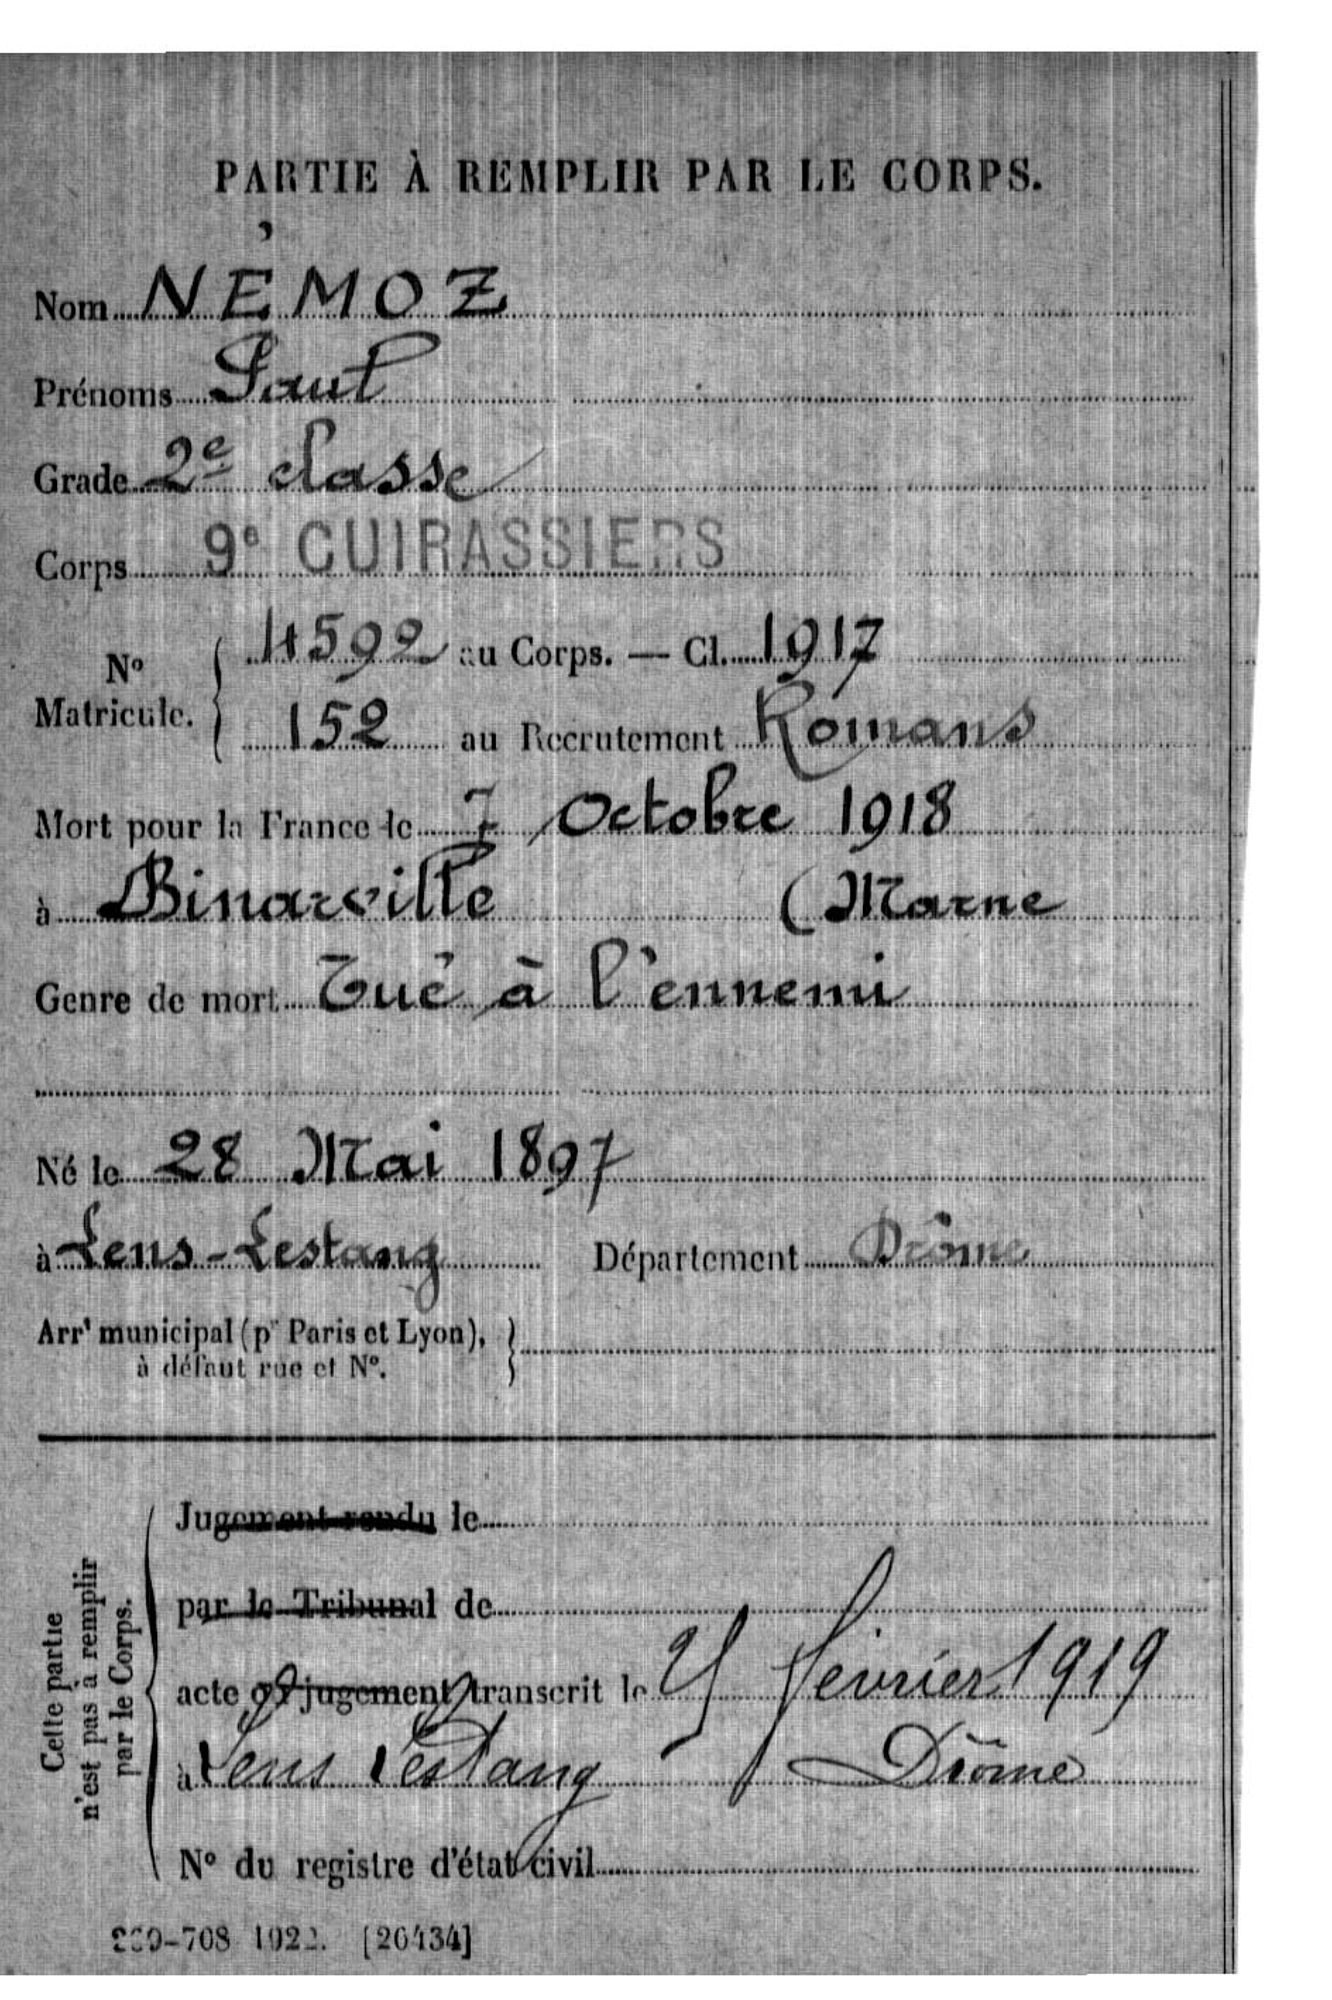 PARTIE À REMPLIR PAR LE CORPS.
Nom NÉMOZ
Prénoms Paul
Grade 2e classe
Corps 9e CUIRASSIERS
N° Matricule. 4592 au Corps. — Cl. 1917
152 au Recrutement Romans
Mort pour la France le 7 Octobre 1918
à Binarville (Marne
Genre de mort Tué à l'ennemi
Né le 28 Mai 1897
à Lens-Lestang Département Drôme
Arrt municipal (pr Paris et Lyon),
à défaut rue et N°.
Cette partie
n'est pas à remplir
par le Corps.
Jugement rendu le
par le Tribunal de
acte ou jugement transcrit le février 1919
à Lens Lestang Drôme
N° du registre d'état civil
708 [26434]